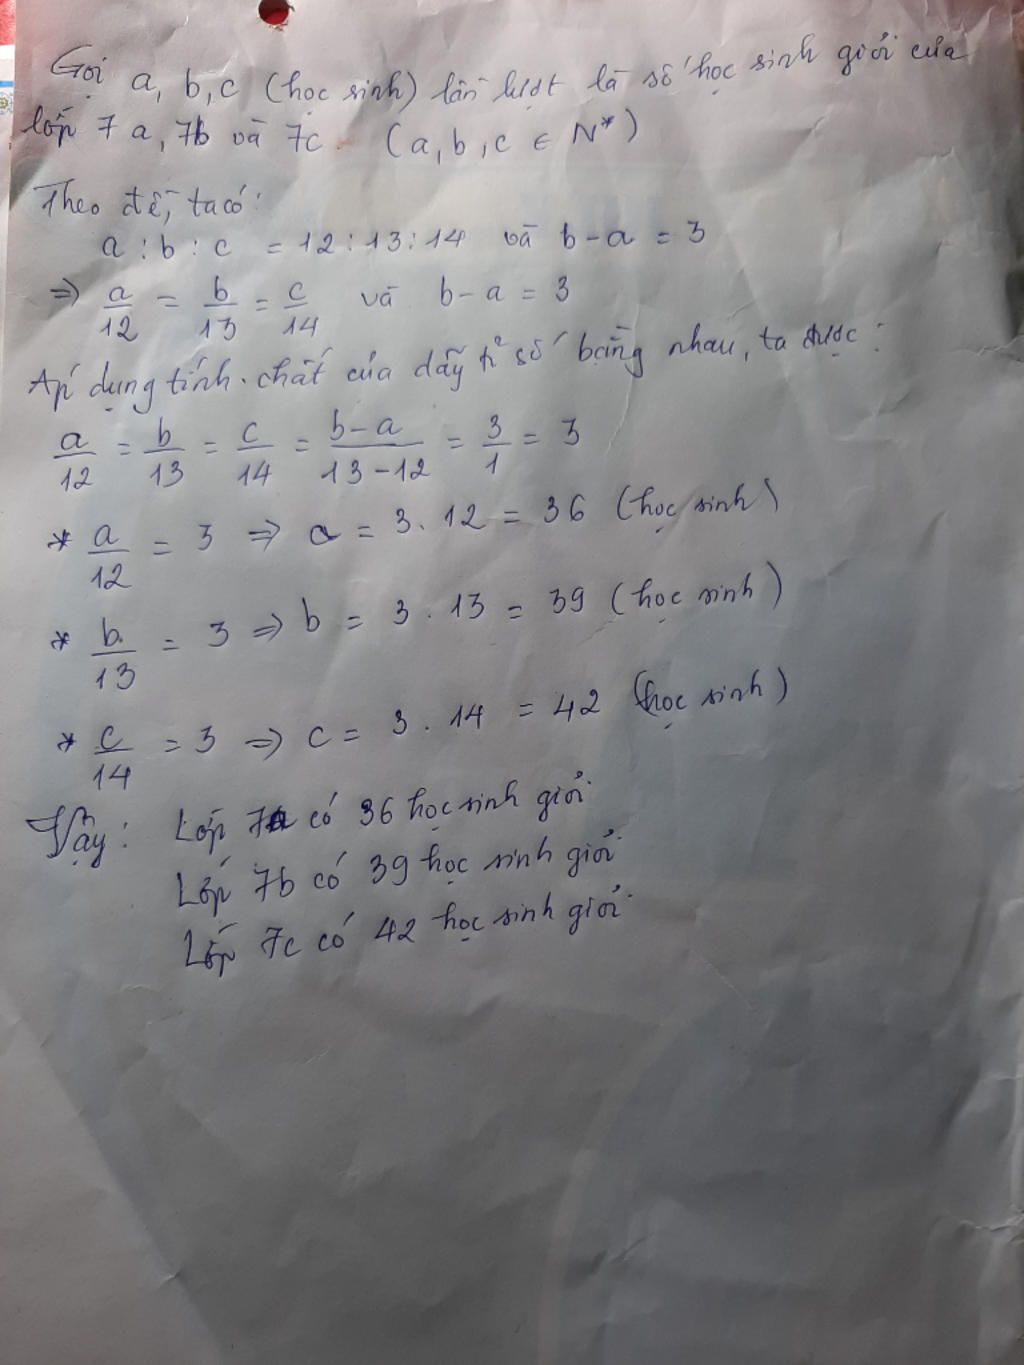 Gọi a, b, c (học sinh) lần lượt là số học sinh giỏi của
lớp 7a, 7b và 7c (a, b, c ∈ N*)
Theo đề, ta có:
a : b : c = 12 : 13 : 14 và b - a = 3
=> a/12 = b/13 = c/14 và b - a = 3
Áp dụng tính chất của dãy tỉ số bằng nhau, ta được:
a/12 = b/13 = c/14 = (b - a)/(13 - 12) = 3/1 = 3
* a/12 = 3 => a = 3 . 12 = 36 (học sinh)
* b/13 = 3 => b = 3 . 13 = 39 (học sinh)
* c/14 = 3 => c = 3 . 14 = 42 (học sinh)
Vậy: Lớp 7a có 36 học sinh giỏi
Lớp 7b có 39 học sinh giỏi
Lớp 7c có 42 học sinh giỏi